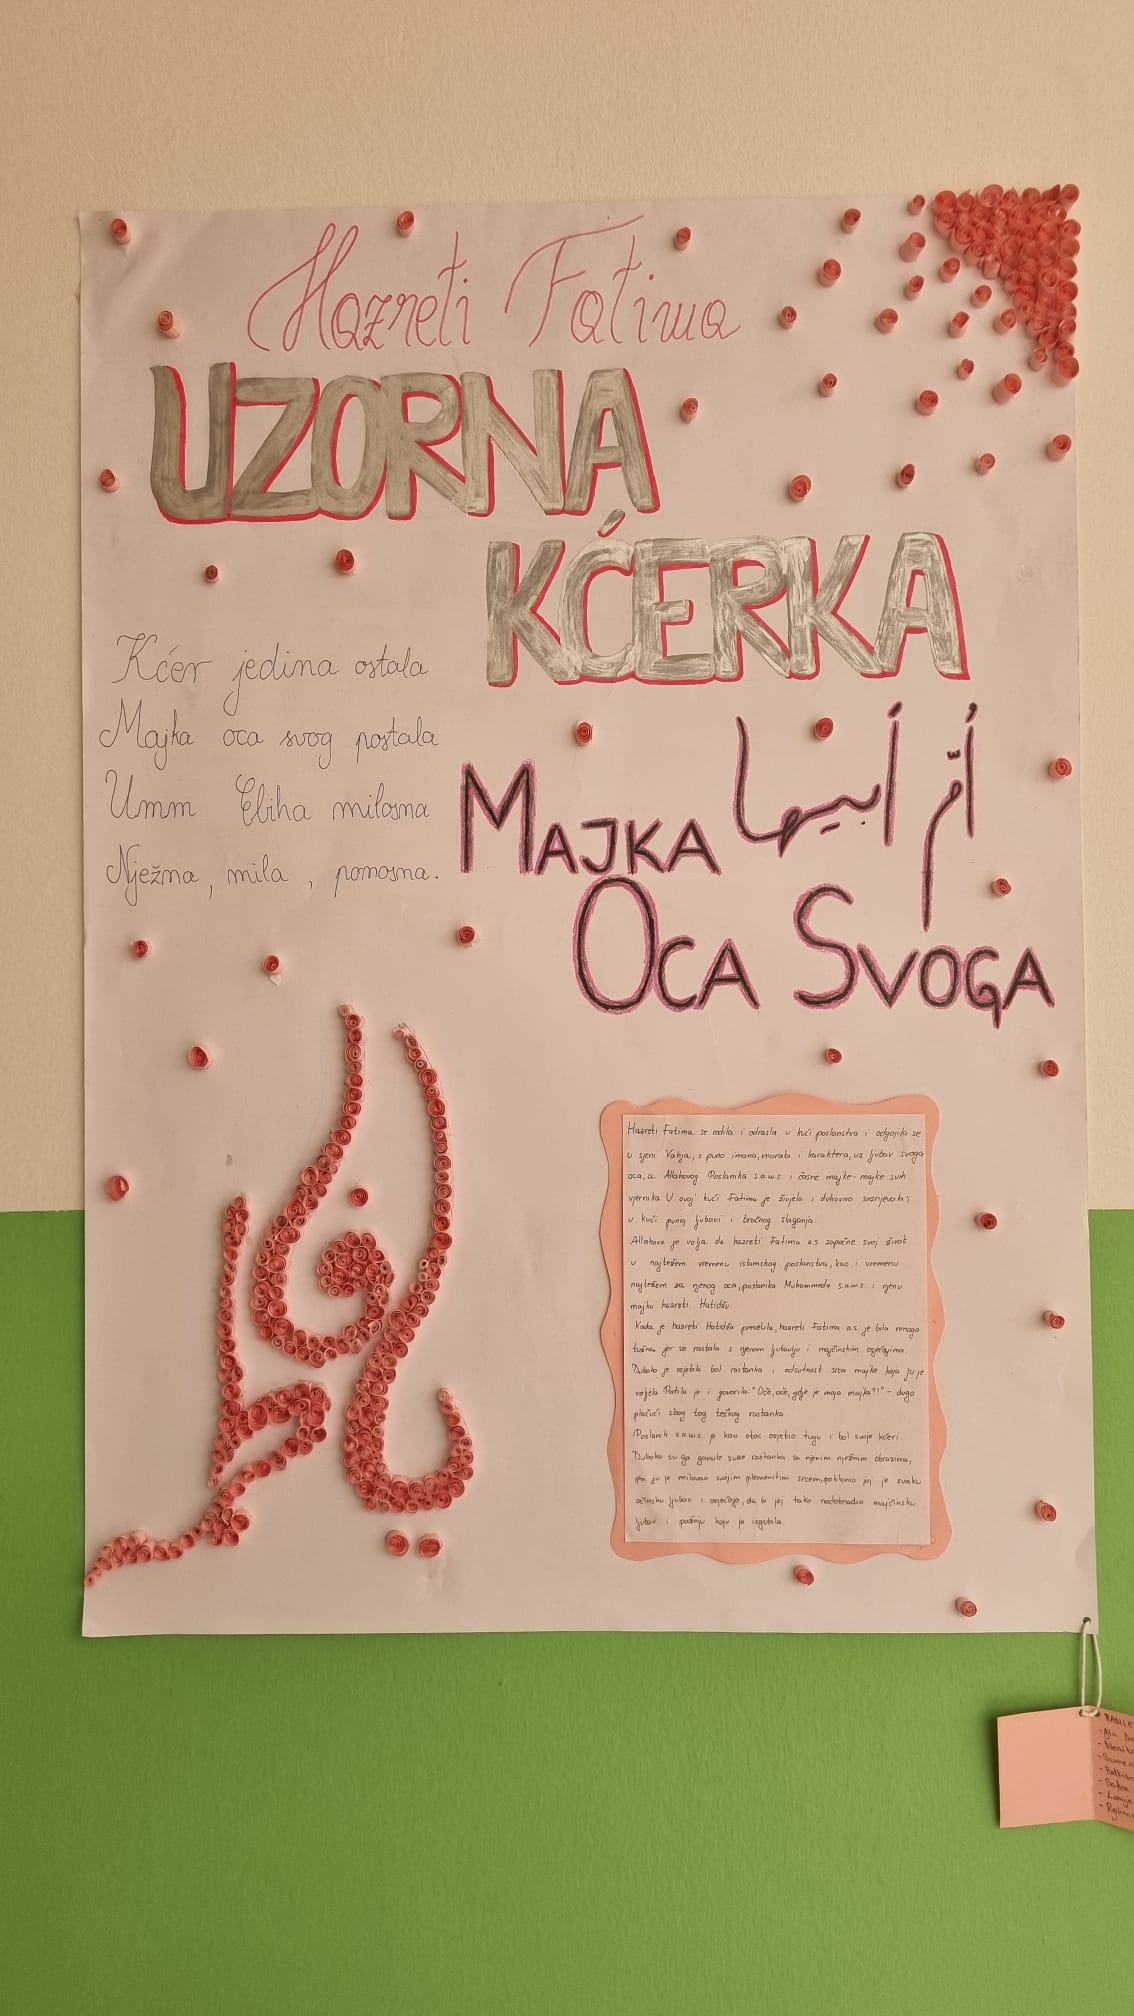 Hazreti Fatima
UZORNA
KĆERKA
Kćer jedina ostala
Majka oca svog postala
Umm Ebiha milosna
Nježna, mila, ponosna.
أُمّ أَبيها
MAJKA
OCA SVOGA
فاطمة
Hazreti Fatima se rodila i odrasla u kući poslanstva i odgojila se
u sjeni Vahja, s puno imana, morala i karaktera, uz ljubav svoga
oca, a Allahovog Poslanika s.a.w.s i časne majke - majke svih
vjernika. U ovoj kući Fatima je živjela i duhovno
u kući punoj ljubavi i bračnog slaganja.
Allahova je volja da hazreti Fatima a.s započne svoj život
u najtežem vremenu islamskog poslanstva, kao i vremenu
najtežem za njenog oca, poslanika Muhammeda s.a.w.s. i njenu
majku hazreti Hatidžu.
Kada je hazreti Hatidža preselila, hazreti Fatima a.s. je bila mnogo
tužna, jer se rastala s njenom ljubavlju i majčinskim osjećajima.
Duboko je osjetila bol rastanka i odsutnost srca majke koja ju je
voljela Patila je i govorila: "Oče, oče, gdje je moja majka?!" - dugo
plačući zbog tog teškog rastanka
Poslanik s.a.w.s. je kao otac osjetio tugu i bol svoje kćeri.
Duboko su ga ganule suze rastanka sa njenim nježnim obrazima,
pa ju je milovao svojim plemenitim srcem, poklonio joj je svaku
očinsku ljubav i osjećaje, da bi joj tako nadoknadio majčinsku
ljubav i pažnju koju je izgubila.